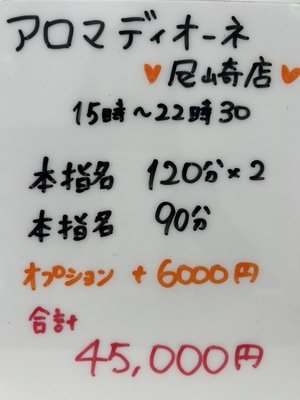 アロマディオーネ
♥尼崎店♥
15時～22時30
本指名 120分×2
本指名 90分
オプション +6000円
合計
45,000円